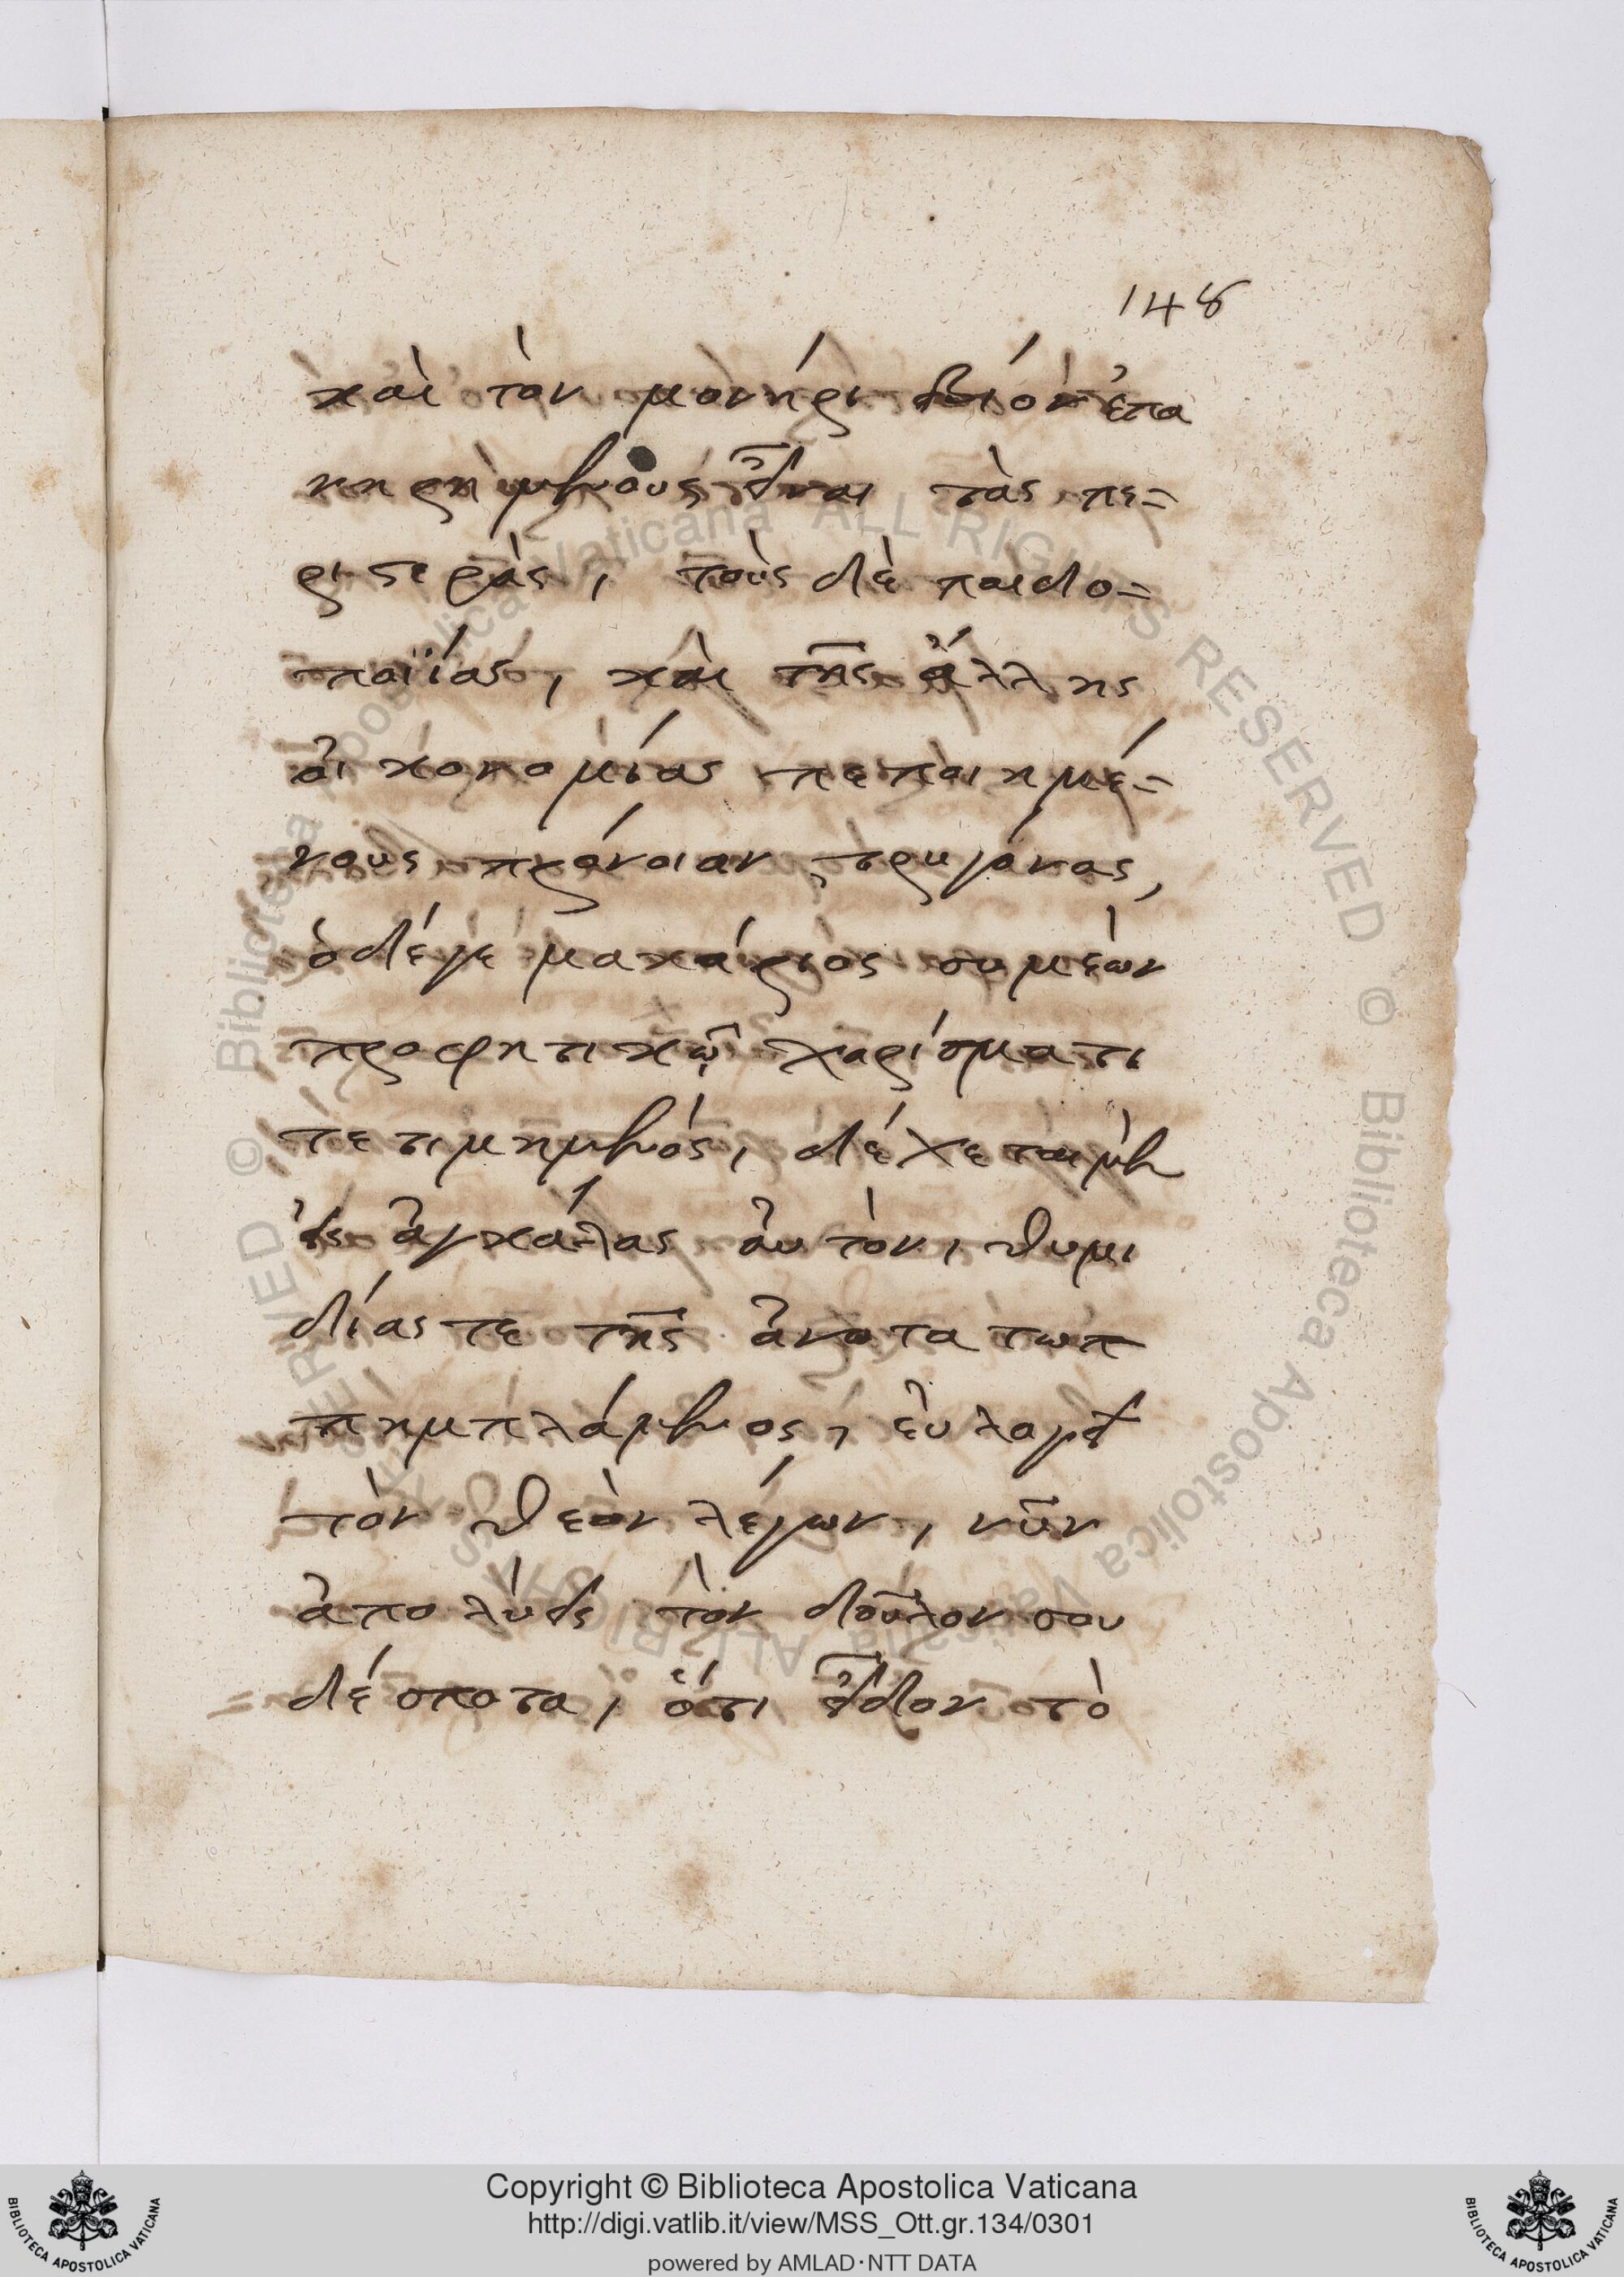 148
καὶ τὸν μονήρι βίον ἐπα
νηρημένους εἶναι τὰς πε=
ριστερὰς, τοὺς δὲ παιδο=
ποιΐας, καὶ τῆς ἄλλης
οἰκονομίας πεποιημέ=
νους πρόνοιαν τρυγόνας,
ὁ δέ γε μακάριος συμεὼν
προφητικῷ χαρίσματι
τετιμημένός, δέχεται μὲν
εἰς ἀγκάλας αὐτὸν, θυμι
δίας τε τῆς ἀνοτα τωπ
πημπλάμενος, εὐλογεῖ
τὸν θεὸν λέγων, νῦν
ἀπολύεις τὸν δοῦλον σου
δέσποτα, ὅτι εἶδον τὸ
© Biblioteca Apostolica Vaticana ALL RIGHTS RESERVED © Biblioteca Apostolica Vaticana ALL RIGHTS RESERVED
Copyright © Biblioteca Apostolica Vaticana
http://digi.vatlib.it/view/MSS_Ott.gr.134/0301
powered by AMLAD·NTT DATA
BIBLIOTECA APOSTOLICA VATICANA
BIBLIOTECA APOSTOLICA VATICANA